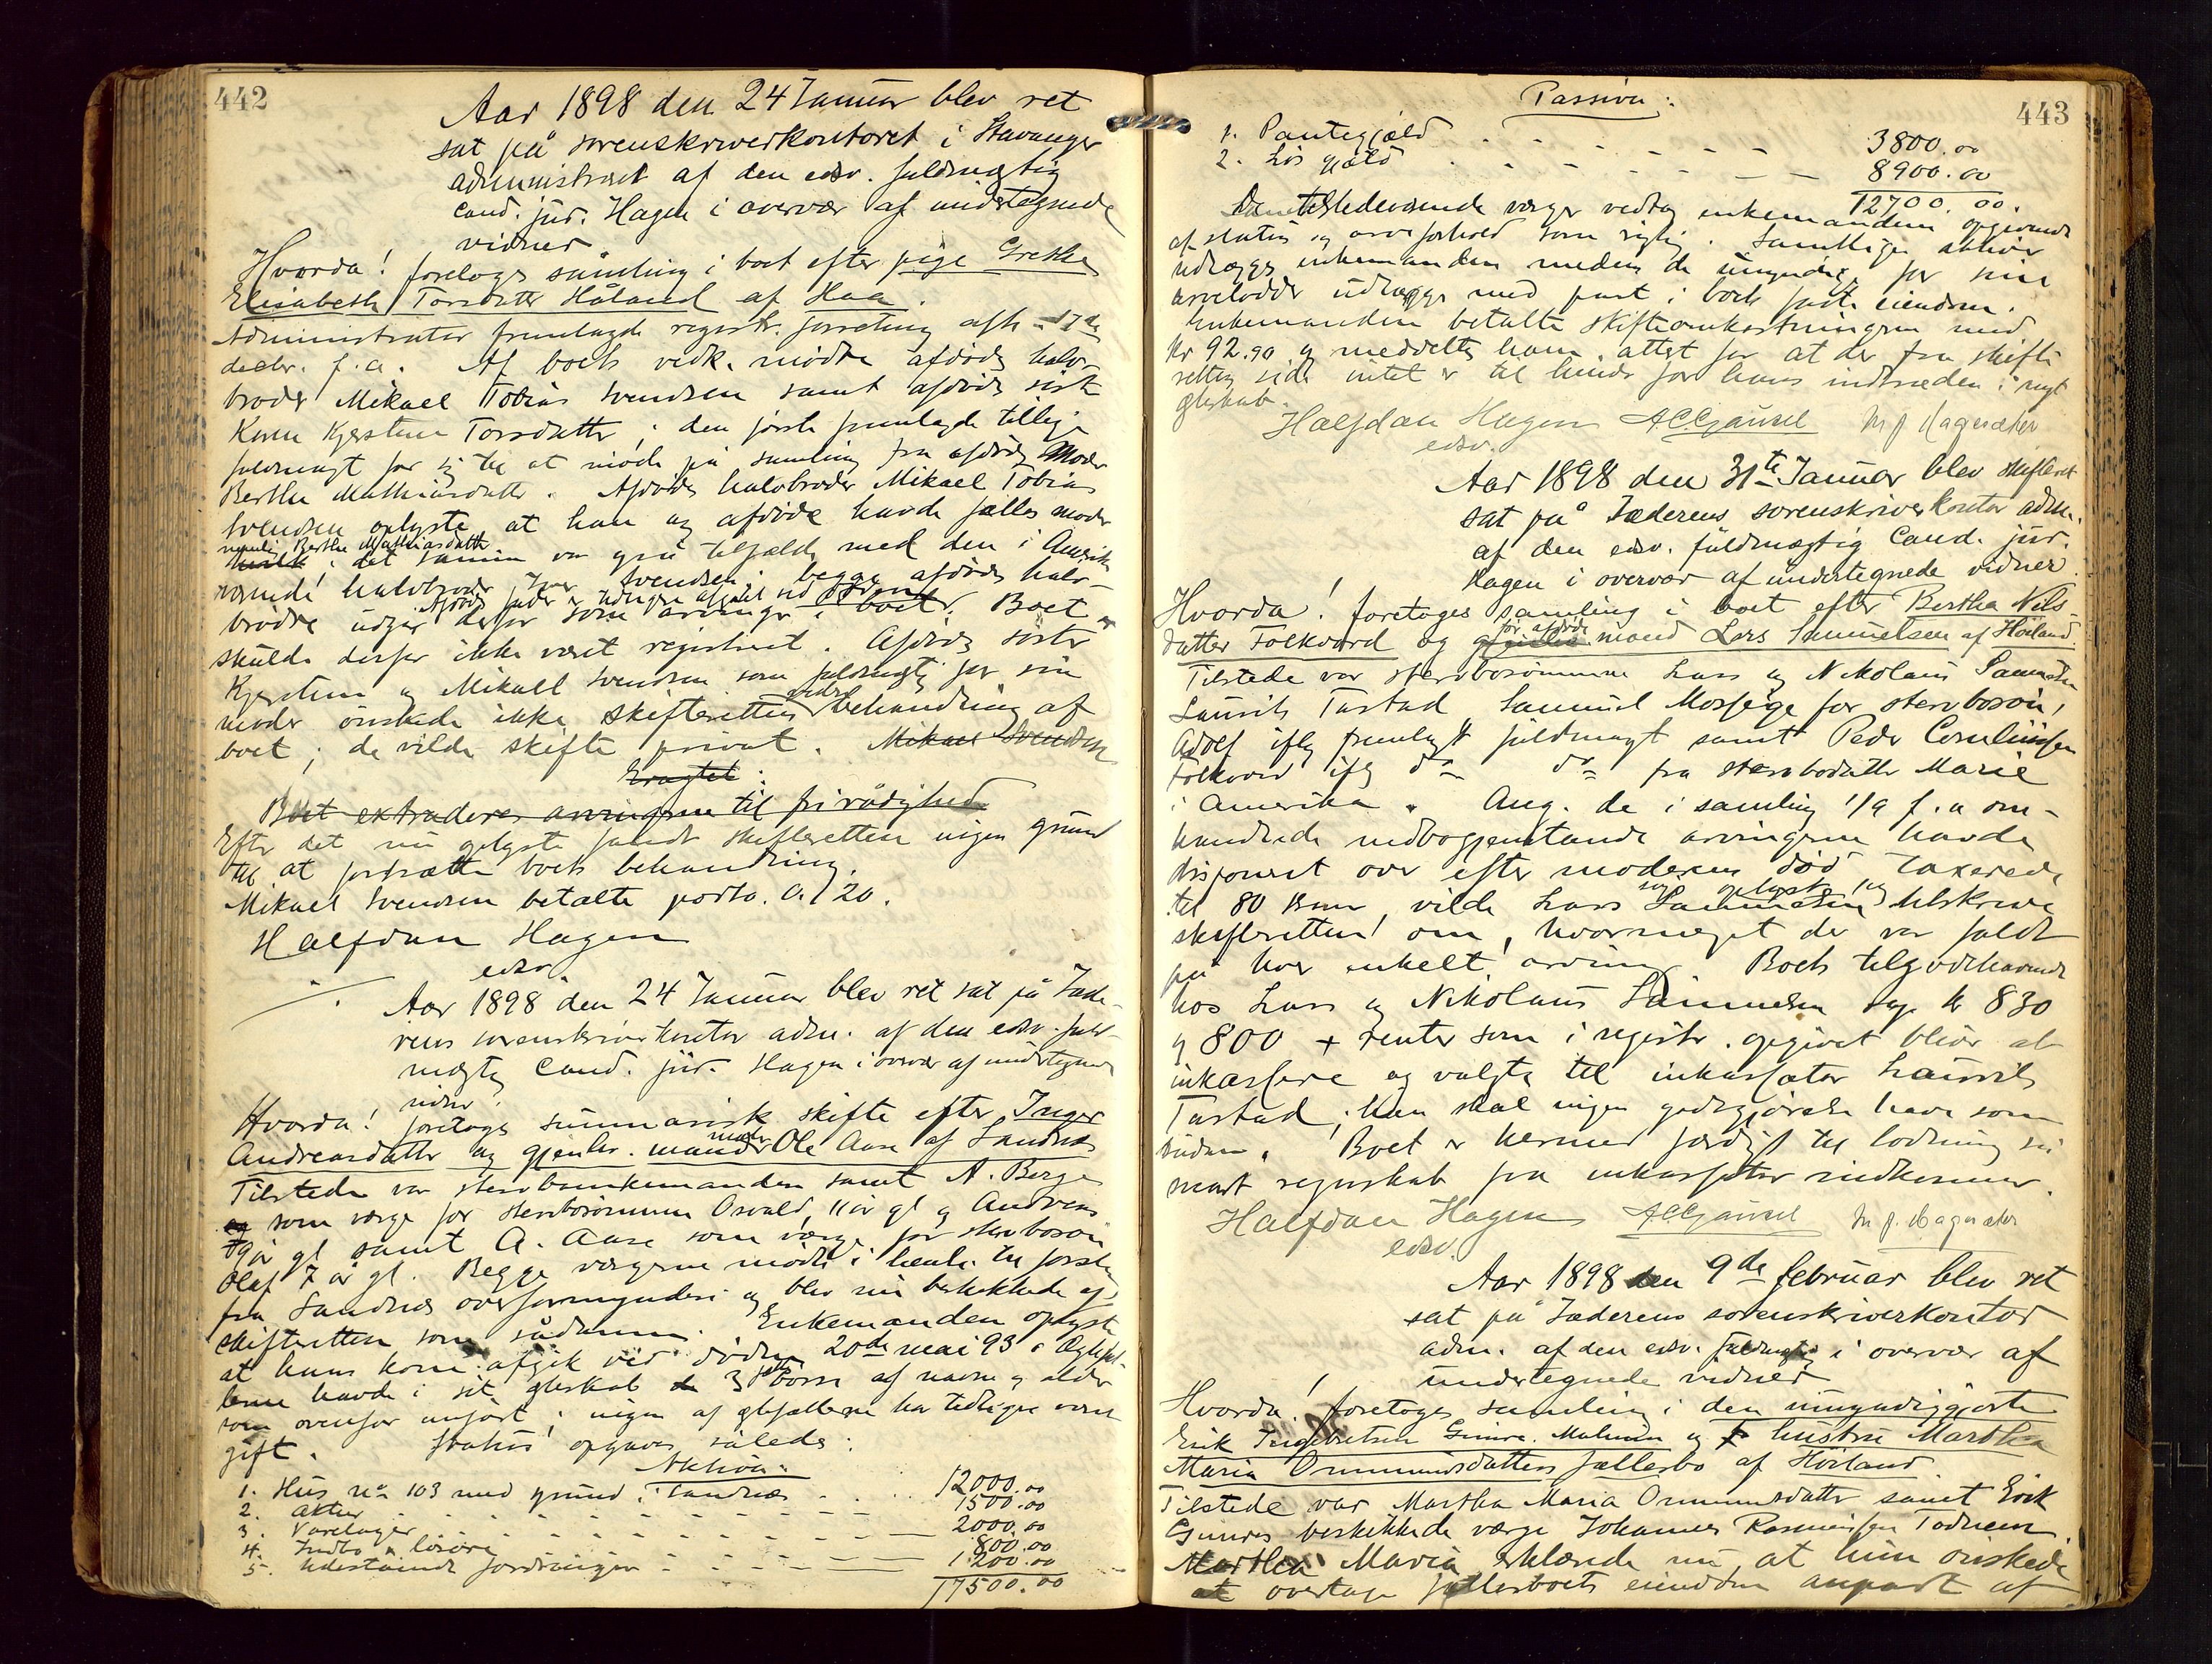 442
Aar 1898 den 24 Januar blev ret
sat på sorenskriverkontoret i Stavanger
administreret af den edsv. fuldmægtig
cand. jur. Hagen i overvær af undertegnede
vidner
Hvorda! foretoges samling i boet efter pige Grethe
Elisabeth Torsdatter Håland af Haa.
Administrator fremlagde registr. forretning afh. 17de
decbr. f. a. Af boets vedk. mødte afdødes halv-
broder Mikael Tobias Svendsen samt afdødes søster
Karen Kjerstine Torsdatter; den første fremlagde tillige
fuldmagt for sig til at møde på samling fra afdødes Moder
Berthe Mathiasdatter. Afdødes halvbroder Mikael Tobias
Svendsen oplyste at han og afdøde havde fælles moder
nemlig Berthe Mathiasdatter
det samme var også tilfælde med den i Amerika
værende halvbroder Iver Svendsen; begge afdødes halv-
Afdødes fader er tidligere afgået ved døden
brødre udgår derfor som arvinger i boet. Boet er
skulde derfor ikke været registreret. Afdødes søster
Kjerstine og Mikael Svendsen som fuldmægtig for sin
moder ønskede ikke skifterettens videre behandling af
boet; de vilde skifte privat. Mikael Svendsen
Eragtet:
Boet extraderes arvingerne til fri rådighed
Efter det nu oplyste fandt skifteretten ingen grund
til at fortsætte boets behandling.
Mikael Svendsen betalte porto. 0.20.
Halfdan Hagen
edsv.
Aar 1898 den 24 Januar blev ret sat på Jæde-
rens sorenskriverkontor adm. af den edsv. fuld-
mægtig Cand. jur. Hagen i overvær af undertegnede
vidner.
Hvorda! foretoges summarisk skifte efter Inger
Andreasdatter og gjenlev. mand Ole Aase af Sandnæs
Tilstede var stervboenkemanden samt A. Berge
som værge for stervbosønnerne Osvald, 11 år gl og Andreas
9 år gl samt A. Aase som værge for stervbosøn
Olaf 7 år gl. Begge værgerne mødte i henh. til forslag
fra Sandnæs overformynderi og blev nu beskikkede af
skifteretten som sådanne. Enkemanden oplyste
at hans kone afgik ved døden 20de mai 93. Ægtefol-
kene havde i sit ægteskab 3 børn af navne og alder
som ovenfor anført; ingen af ægtefællerne har tidligere været
gift. Status opgaves således:
Aktiva:
1. Hus no 103 med grund i Sandnæs . . . 12000.00
2. Aktier . . . 1500.00
3. Varelager . . . 2000.00
4. Indbo & løsøre . . . 800.00
5. Udestående fordringer . . . 1200.00
17500.00
443
Passiva:
1. Pantegjæld . . . 3800.00
2. Løs gjæld . . . 8900.00
12700.00.
De tilstedeværende værger vedtog enkemandens opgivende
af status og arveforhold som rigtig. Samtlige aktiver
udlægges enkemanden medens de umyndige for sine
arvelodder udlægges med pant i boets faste eiendom.
Enkemanden betalte skifteomkostningerne med
Kr 92.90 og meddeltes ham attest for at der fra skifte
rettens side intet er til hinder for hans indtræden i nyt
ægteskab.
Halfdan Hagen
edsv.
Aar 1898 den 31te Januar blev skifteret
sat på Jæderens sorenskriverkontor adm.
af den edsv. fuldmægtig Cand. jur.
Hagen i overvær af undertegnede vidner.
Hvorda! foretoges samling i boet efter Berthe Nils-
datter Folkvord og før afdøde mand Lars Samuelsen af Høiland.
Tilstede var stervbosønnerne Lars og Nikolaus Samuelsen
Laurits Tastad Samuel Mossige for stervbosøn,
Adolf iflg fremlagt fuldmagt samt Peder Corneliussen
Folkvord iflg do do fra stervbodatter Marie
i Amerika. Ang. de i samling 1/9 f. a om-
handlede indbogjenstande arvingerne havde
disponeret over efter moderens død taxerede
til 80 kroner, vilde Lars Samuelsen tilskrive
skifteretten om, hvormeget der var faldt
på hver enkelt arving. Boets tilgodehavende
hos Lars og Nikolaus Samuelsen resp. kr 830
og 800 + renter som i registr. opgivet bliver at
inkassere og valgte til inkassator Laurits
Tastad; han skal ingen godtgjørelse have som
sådan. Boet er hermed færdigt til lodning så
snart regnskab fra inkassator indkommer.
Halfdan Hagen
edsv.
Aar 1898 den 9de februar blev ret
sat på Jæderens sorenskriverkontor
adm. af den edsv. fuldmægtig i overvær af
undertegnede vidner
Hvorda! foretoges samling i den umyndiggjorte
Erik Ingebretsen Gimre Malmin og hustru Martha
Maria Ommundsdatters fællesbo af Høiland
Tilstede var Martha Maria Ommundsdatter samt Erik
Gimres beskikkede værge Johannes Rasmussen Todnem.
Martha Maria erklærede nu at hun ønskede
at overtage fællesboets eiendom anpart af